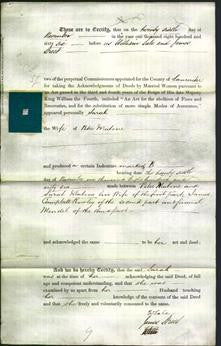 These are to Certify, that on the twenty sixth day of
November in the year one thousand eight hundred and
sixty six before us William Sale and James
Street
two of the perpetual Commissioners appointed for the County of Lancaster
for taking the Acknowledgments of Deeds by Married Women pursuant to
an Act passed in the third and fourth years of the Reign of His late Majesty
King William the Fourth, intituled "An Act for the abolition of Fines and
Recoveries, and for the substitution of more simple Modes of
Assurance," appeared personally Sarah
the Wife of Peter
and produced a certain Indenture marked
bearing date the twenty sixth
day of November one thousand eight hundred and
sixty six made between Peter
and Sarah his Wife of the first part James
Campbell of the second part and
of the third part
and acknowledged the same to be her act and deed:
And we do hereby Certify, that the said Sarah
was at the time of her acknowledging the said Deed, of full
age and competent understanding, and that she was
examined by us apart from her Husband touching
her knowledge of the contents of the said Deed
and that she freely and voluntarily consented to the same.
W Sale
James Street